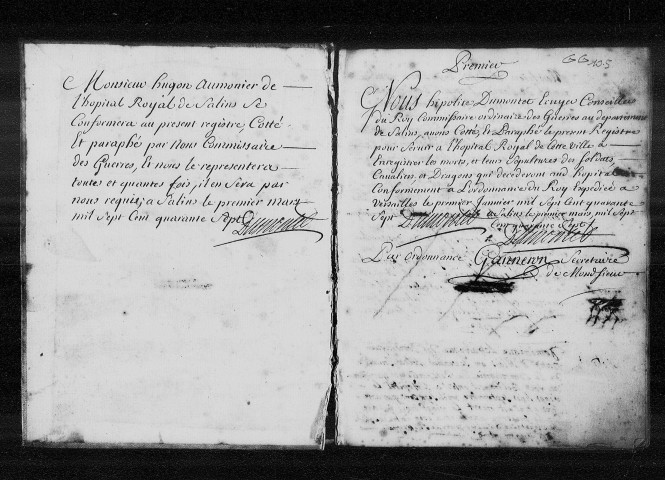 Monsieur hugon aumonier de
l'hopital Royal de Salins Se
Conformera au present registre, Cotté
Et paraphé par nous Commissaire
des Guerres, Et nous le representera
toutes et quantes fois, il en Sera par
nous requis, a Salins le premier mars
mil Sept Cent quarante Sept Dumontet
Premier
GG 135
Nous hipolite Dumontet Ecuyer Conseiller
du Roy Commissaire ordinaire des Guerres au departement
de Salins, avons Cotté, Et Paraphé le present Registre
pour Servir a l'hopital Royal de Cette ville a
Enregistrer les morts, et leur sepultures des Soldats,
Cavaliers, et Dragons qui decederont aud. hopital
Conformement a L'ordonnance du Roy Expediée a
Versailles le premier Janvier mil Sept Cent quarante
Sept Dumontet a Salins le premier mars, mil Sept
Cent quarante Sept
Dumontet
Par ordonnance Garneron Secretaire
de Mondsieur